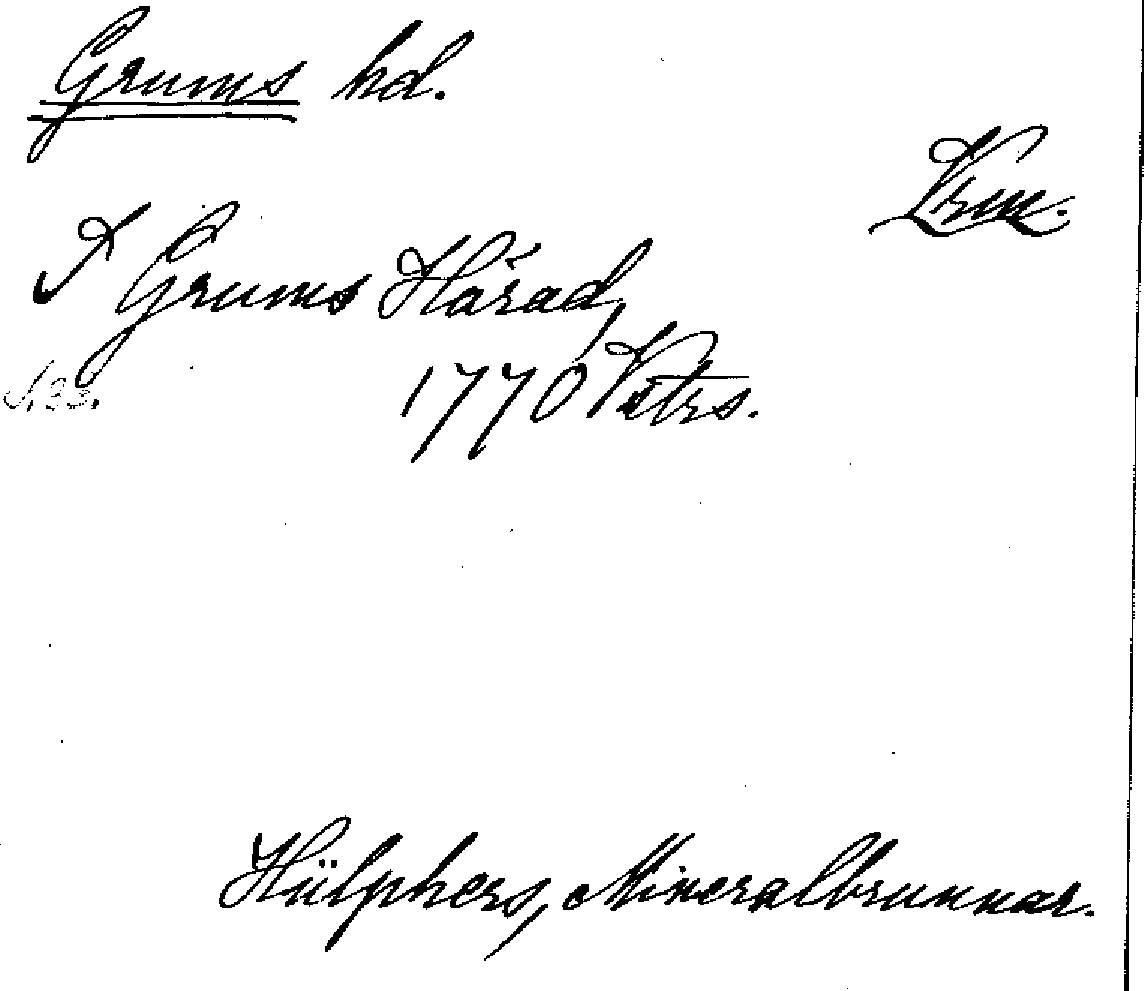 Grums hd.
Vrm.
I Grums Härad,
1770 Vstrs.
Hülphers, Mineralbrunnar.